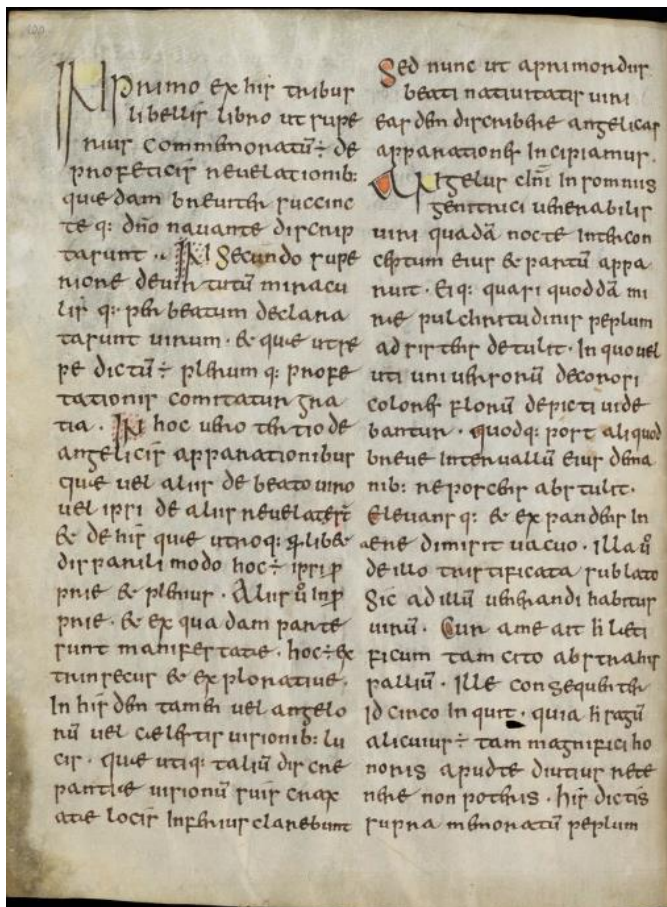 IN primo ex his tribus
libellis libro ut supe
rius commemoratū ÷ de
profeticis reuelationib:
quædam breuiter succinc
te q: dn̄o nauante discrip
ta sunt .. IN Secundo supe
riore deuirtutū miracu
lis q: per beatum declara
ta sunt uirum · & quæ ut se
pe dictū ÷ plerum q: profe
tationis comitatur gra
tia · IN hoc uero tertio de
angelicis apparationibus
quæ uel aliis de beato uiro
uel ipsi de aliis reuelatæ sr̄t
& de his quæ utroq: ꝓlibet
dispanili modo hoc ÷ ipsi ꝓ
prie & plenius · Aliis ů inꝓ
prie · & ex qua dam parte
sunt manifestatæ · hoc ÷ ex
trinsecus & explorative ·
In his dem tamen uel angelo
rū uel cælestis uisionib: lu
cis · quæ utiq: taliū discre
pantiæ uisionū suis crax
atæ locis Inferius clarebunt
Sed nunc ut aprimordiis
beati natiuitatis uiri
easdem discribere angelicas
apparationes Incipiamus ·
ANgelus dn̄i In somniis
genitrici uenerabilis
uiri quadā nocte Inter con
ceptum eius & partū appa
ruit · Eiq: quasi quoddā mi
ræ pulchritudinis peplum
adsistens detulit · In quo uel
uti uniuersorū decorosi
colores florū depicti uide
bantur · quodq: post aliquod
breue Interuallū eius dema
nib: reposcens abstulit ·
Eleuans q: & expandens In
aere dimisit uacuo · Illa ů
de illo tristificata sublato
Sic ad illū uenerandi habitus
uirū · Cur ame ait h læti
ficum tam cito abstrahis
palliū · Ille consequenter
Id circo Inquit · quia h sagū
alicuius ÷ tam magnifici ho
noris apudte diutius rete
nere non poteris · his dictis
supra memoratū peplum